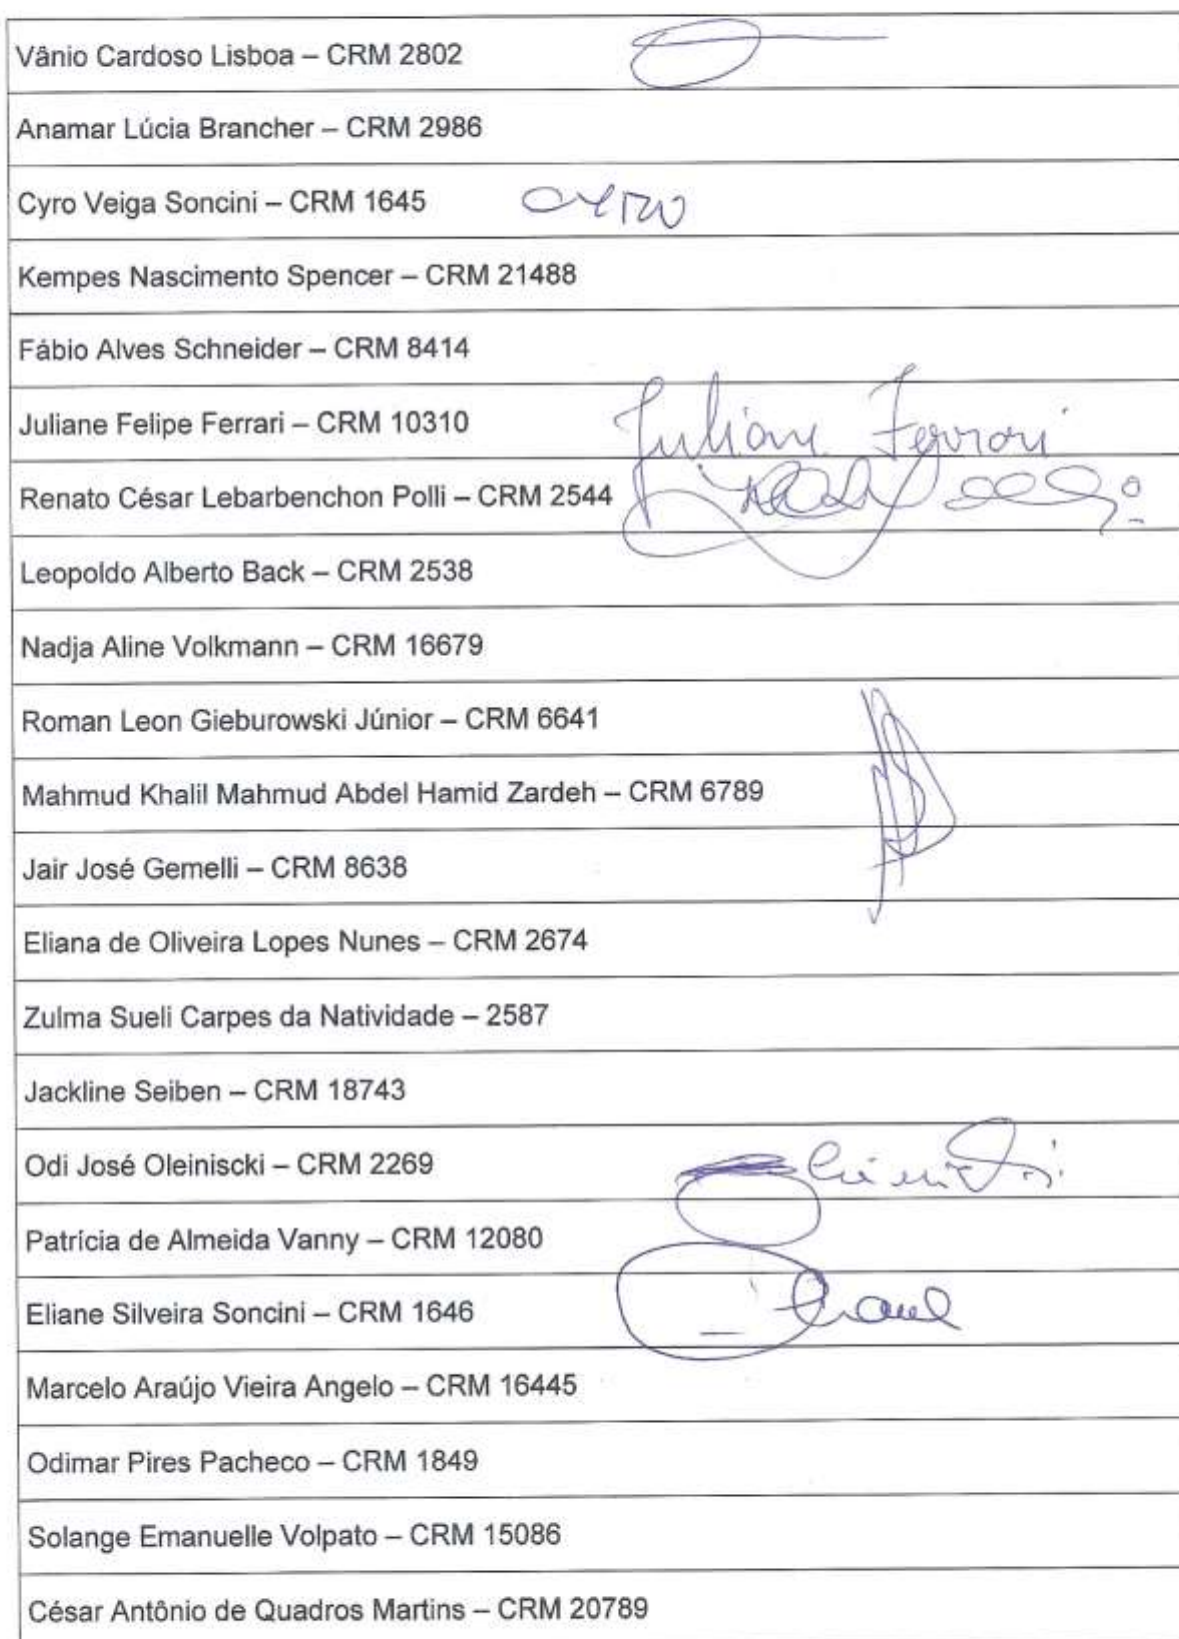 Vânio Cardoso Lisboa – CRM 2802
Anamar Lúcia Brancher – CRM 2986
Cyro Veiga Soncini – CRM 1645 Cyro
Kempes Nascimento Spencer – CRM 21488
Fábio Alves Schneider – CRM 8414
Juliane Felipe Ferrari – CRM 10310 Juliane Ferrari
Renato César Lebarbenchon Polli – CRM 2544
Leopoldo Alberto Back – CRM 2538
Nadja Aline Volkmann – CRM 16679
Roman Leon Gieburowski Júnior – CRM 6641
Mahmud Khalil Mahmud Abdel Hamid Zardeh – CRM 6789
Jair José Gemelli – CRM 8638
Eliana de Oliveira Lopes Nunes – CRM 2674
Zulma Sueli Carpes da Natividade – 2587
Jackline Seiben – CRM 18743
Odi José Oleiniscki – CRM 2269
Patrícia de Almeida Vanny – CRM 12080
Eliane Silveira Soncini – CRM 1646
Marcelo Araújo Vieira Angelo – CRM 16445
Odimar Pires Pacheco – CRM 1849
Solange Emanuelle Volpato – CRM 15086
César Antônio de Quadros Martins – CRM 20789